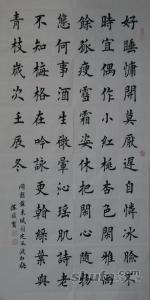 好睡慵開莫厭遲自憐冰臉不
時宜偶作小紅桃杏色閒雅尚
餘孤瘦雪霜姿休把閒心隨物
態何事酒生微暈沁瑤肌詩老
不知梅格在吟詠更看綠葉與
青枝歲次壬辰冬
蘇東坡詞定風波紅梅